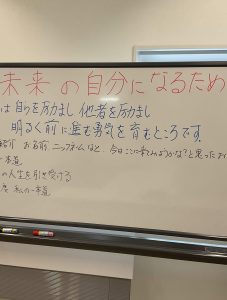 未来の自分になるため
は自らを励まし他者を励まし
明るく前に進む勇気を育むところです。
紹介 お名前 ニックネームなど 今日ここに来てみようかな?と思った
本道
の人生を引き受ける
私の一本道